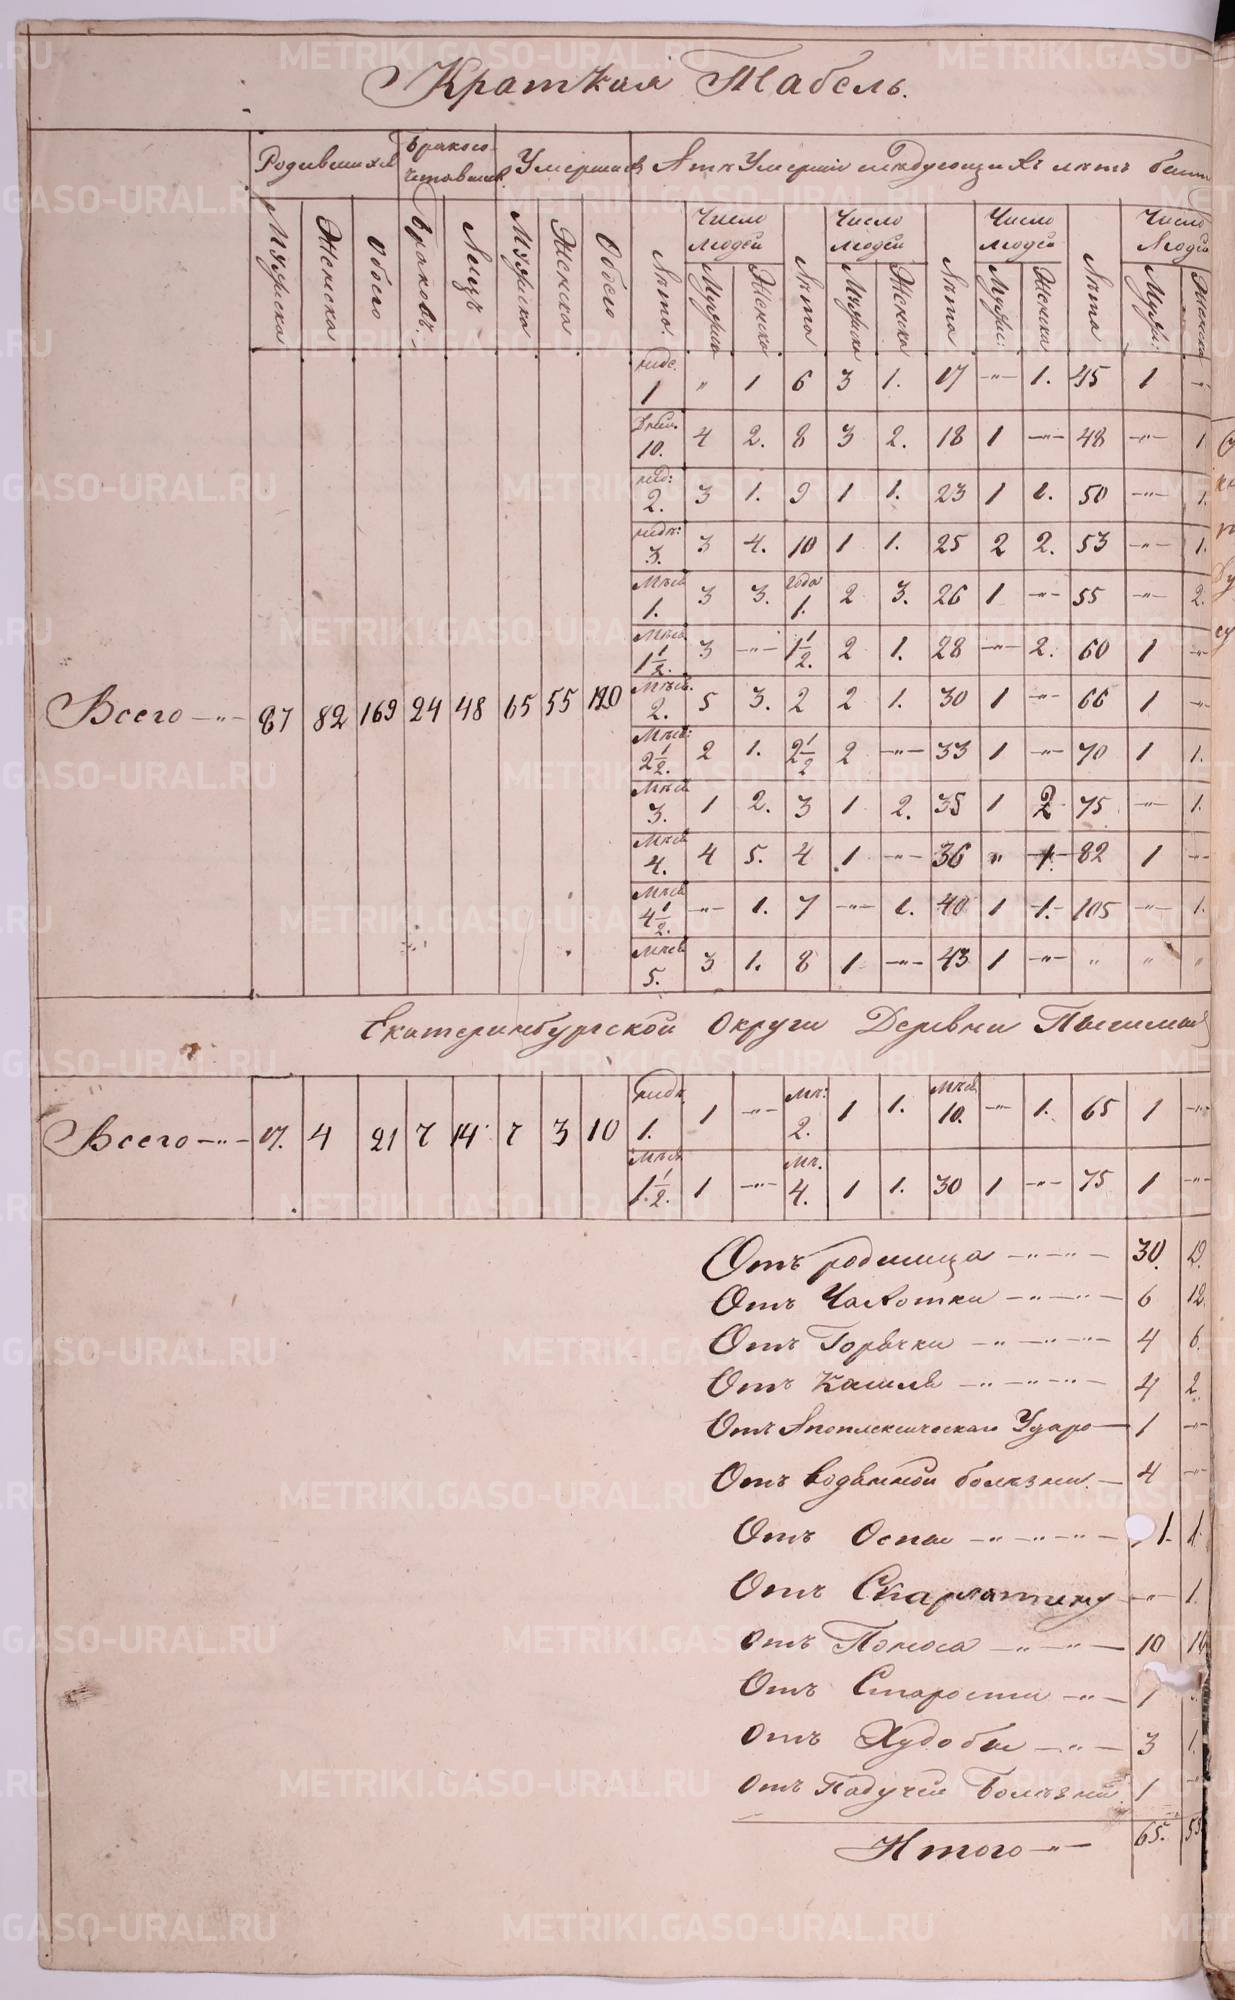 Краткая Табель.
Родившихся Бракосо- Умершихъ
четавших.
Мужска Женска Обоего Браковъ. Лицъ Мужска Женска Обоего Лѣта. Число людей Мужска Женска Лѣта Число людей Мужска Женска Лѣта Число людей Мужс: Женска Лѣта Число людей Муж: Женска
1 " 1 6 3 1. 17 -"- 1. 45 1 -"-
10. 4 2. 8 3 2. 18 1 -"- 48 -"- 1
нед: 2. 3 1. 9 1 1. 23 1 1. 50 -"- 1.
3. 3 4. 10 1 1. 25 2 2. 53 -"- 1.
Мѣся 1. 3 3. года 1. 2 3. 26 1 -"- 55 -"- 2.
Мѣся 1 1/2. 3 -"- 1 1/2. 2 1. 28 -"- 2. 60 1 -"-
Всего -"- 87 82 169 24 48 65 55 120 Мѣся. 2. 5 3. 2 2 1. 30 1 -"- 66 1 -"-
Мѣся: 2 1/2. 2 1. 2 1/2 2 -"- 33 1 -"- 70 1 1.
Мѣся 3. 1 2. 3 1 2. 35 1 2 75 -"- 1.
Мѣся 4. 4 5. 4 1 -"- 36 " 1. 82 1 -"-
Мѣся 4 1/2. -"- 1. 7 -"- 1. 40 1 1. 105 -"- 1.
Мѣся 5. 3 1. 8 1 -"- 43 1 -"- " " "
Екатеринбургской Округи Деревни
Всего -"- 17. 4 21 7 14 7 3 10 1. 1 -"- Мѣ: 2. 1 1. Мѣся 10. -"- 1. 65 1 -"-
Мѣся 1 1/2. 1 -"- Мѣ. 4. 1 1. 30 1 -"- 75 1 -"-
Отъ родимца -"-"- 30.
Отъ Чахотки -"-"- 6 12.
Отъ Горячки -"-"-"- 4 6.
Отъ Кашля -"-"-"- 4 2.
Отъ Апоплексическаго Удара - 1 -"-
Отъ водяной болѣзни. - 4 -"-
Отъ Оспы -"-"-"- 1. 1.
Отъ Скарлатины -"- 1.
Отъ Поноса -"-"- 10
Отъ Старости -"- 1
Отъ Худобы -"- 3 1.
Отъ Падучей Болѣзни. 1
Итого -"- 65. 55